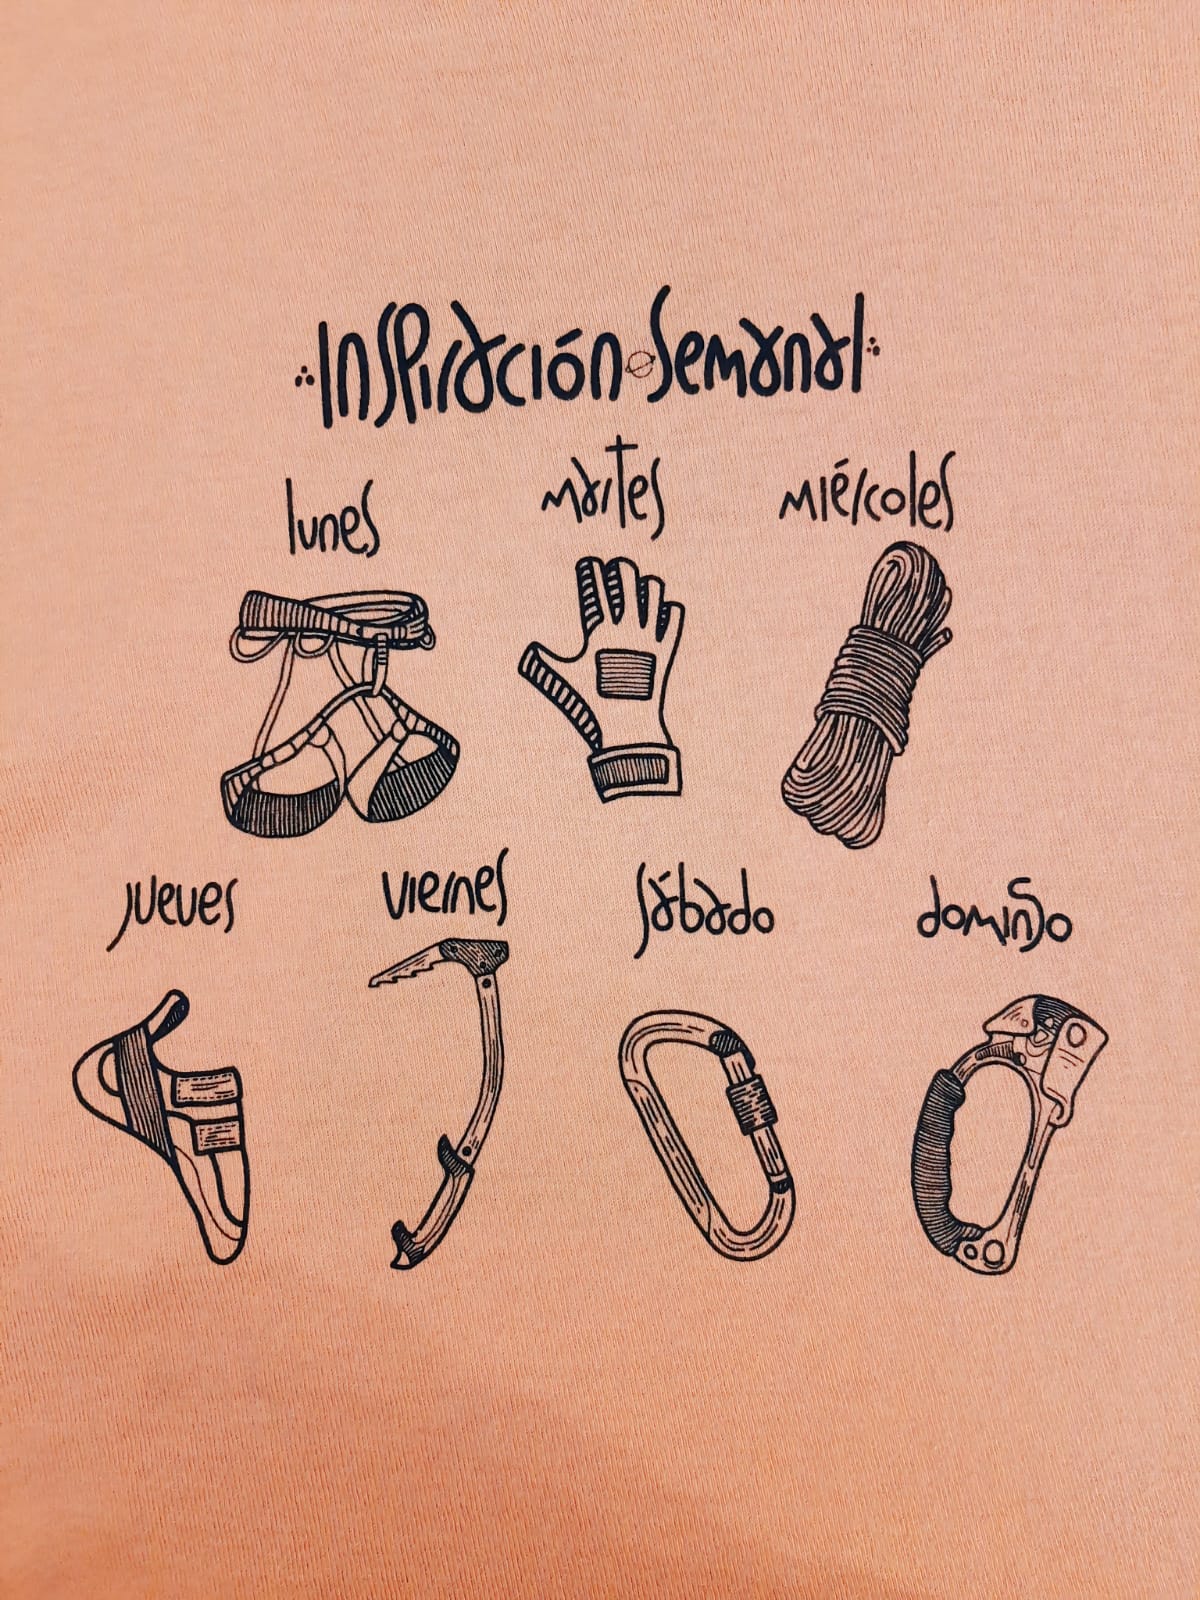 Inspiración Semanal
lunes
martes
miércoles
jueves
viernes
sábado
domingo